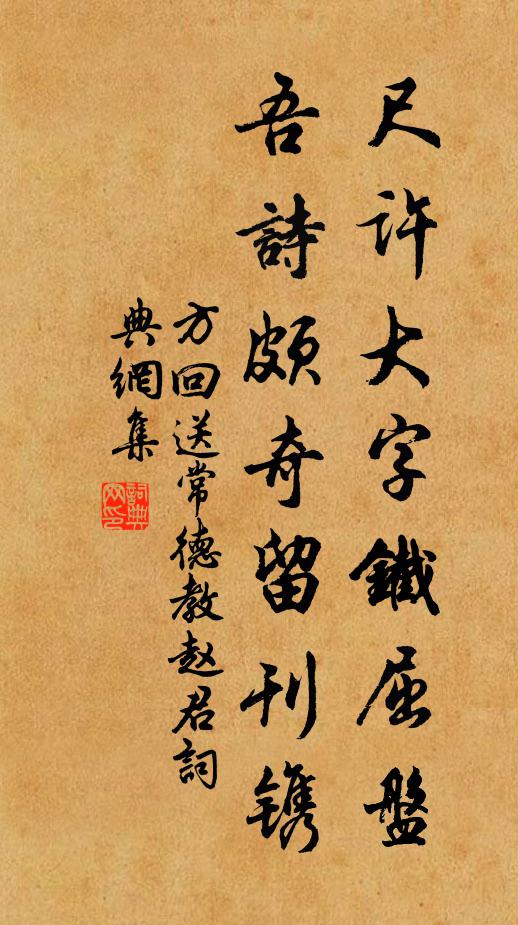 尺許大字鐵屈盤
吾詩頗奇留刊镌
方回送常德教赵君詞
典網集
詞典
网印